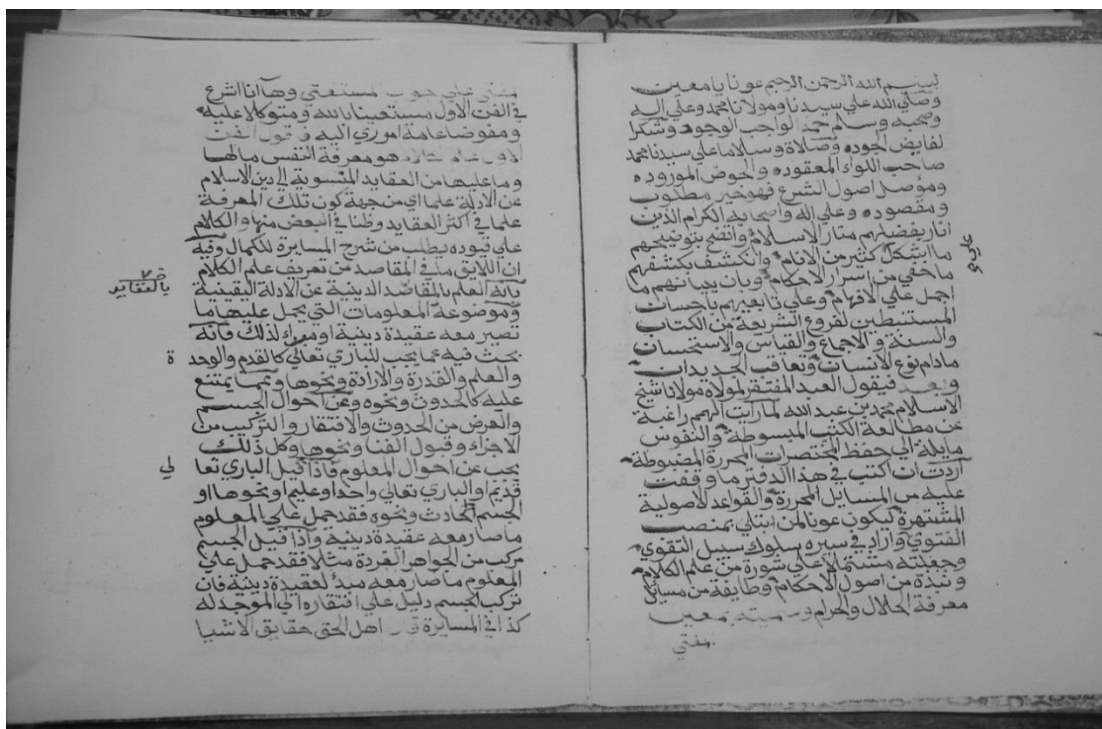 بسم الله الرحمن الرحيم عونا يا معين
وصلي الله علي سيدنا ومولانا محمد وعلي اله
وصحبه وسلم حمدا لواجب الوجود وشكرا
لفايض الجوده وصلاة وسلاما علي سيدنا محمد
صاحب اللواء المعقوده والحوض الموروده
وموصل اصول الشرع فهو خير مطلوب
ومقصوده وعلي اله واصحابه الكرام الذين
انار بفضلهم منار الاسلام واتضح بتوضيحهم
ما اشكل كثير من الانام وانكشف بكشفهم
ما خفي من اسرار الاحكام وبان ببيانهم ما
اجمل علي الافهام وعلي تابعيهم باحسان
المستنبطين لفروع الشريعة من الكتاب
والسنة والاجماع والقياس والاستحسان
مادام نوع الانسان وتعاقب الجديدان
وبعد فيقول العبد المفتقر لمولاه مولانا شيخ
الاسلام محمد بن عبد الله لما رايت الهمم راغبة
عن مطالعة الكتب المبسوطة والنفوس
مايلة الي حفظ المختصرات المحررة المضبوطة
اردت ان اكتب في هذا الدفتر ما وقفت
عليه من المسايل المحررة والقواعد الاصولية
المشتهرة ليكون عونا لمن ابتلي بمنصب
الفتوي وازاد في سيره سلوك سبيل التقوي
وجعلته مشتملا علي شورة من علم الكلام
ونبذة من اصول الاحكام وطايفة من مسايل
معرفة الحلال والحرام وسميته بمعين
المفتي
المفتي علي جواب المستفتي وها انا اشرع
في الفن الاول مستعينا بالله ومتوكلا عليه
ومفوضا عامة اموري اليه فنقول الفن
الاول علم الكلام هو معرفة النفس ما لها
وما عليها من العقايد المنسوبة الي دين الاسلام
عن الادلة علما اي من جهة كون تلك المعرفة
علما في اكثر العقايد وظنا في البعض منها والكلام
علي قيوده يطلب من شرح المسايرة للكمال وفيه
ان اللايق ما في المقاصد من تعريف علم الكلام
بانه العلم بالمقاصد الدينية عن الادلة اليقينية
بالعقايد
وموضوعه المعلومات التي يحمل عليها ما
تصير معه عقيدة دينية او مبدا لذلك فانه
يبحث فيه عما يجب للباري تعالي كالقدم والوحد ة
والعلم والقدرة والارادة ونحوها وعما يمتنع
عليه كالحدوث ونحوه وعن احوال الجسم
والعرض من الحدوث والافتقار والتركيب من
الاجزاء وقبول الفنا ونحوها وكل ذلك
يجب عن احوال المعلوم فاذا قيل الباري تعا لي
قديم او الباري تعالي واحد او عليم او نحوها او
الجسم الحادث ونحوه فقد حمل علي المعلوم
ما صار معه عقيدة دينية واذا قيل الجسم
مركب من الجواهر الفردة مثلا فقد حمل علي
المعلوم ما صار معه مبدا لعقيدة دينية فان
تركب الجسم دليل علي افتقاره الي الموجد له
كذا في المسايرة قال اهل الحق حقايق الاشيا